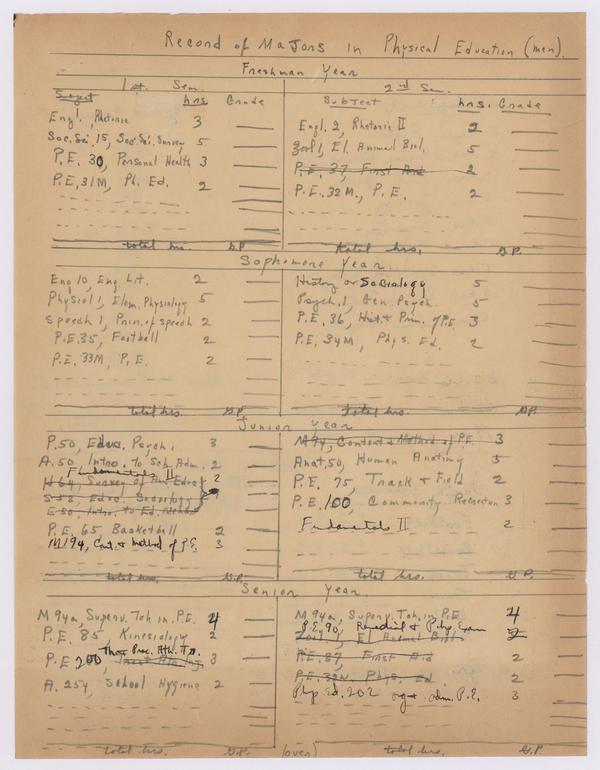 Record of Majors in Physical Education (men).
Freshman Year
1st. Sem.
Subject hrs. Grade
Engl., Rhetoric 3
Soc. Sci. 15, Soc. Sci. Survey 5
P.E. 30, Personal Health 3
P.E. 31M, Ph. Ed. 2
total hrs. G.P.
2nd Sem.
Subject hrs. Grade
Engl. 2, Rhetoric II 2
Zool 1, El. Animal Biol. 5
P.E. 37, First Aid 2
P.E. 32M., P.E. 2
total hrs. G.P.
Sophomore Year.
Eng 10, Eng. Lit. 2
Physiol 1, Elem. Physiology 5
Speech 1, Prin. of speech 2
P.E. 35, Football 2
P.E. 33M, P.E. 2
total hrs. G.P.
History or Sociology 5
Psych. 1, Gen. Psych. 5
P.E. 36, Hist. & Prin. of P.E. 3
P.E. 34M, Phys. Ed. 2
total hrs. G.P.
Junior Year
P.50, Educ. Psych. 3
A.50, Intro. to Sch. Adm. 2
Fundamentals II
H 64, Survey of Educ. 2
S 52, Educ. Sociology
E 50, Intro. to Ed.
P.E. 65, Basketball 2
M194, Cont. & Method of P.E. 3
total hrs. G.P.
M 94, Content & Method of P.E. 3
Anat. 50, Human Anatomy 5
P.E. 75, Track & Field 2
P.E. 100, Community Recreation 3
Fundamentals II 2
total hrs. G.P.
Senior Year.
M 94a, Superv. Tch. in P.E. 4
P.E. 85, Kinesiology 2
Theor. Prac. Ath. Tr.
P.E 200, 3
A. 254, School Hygiene 2
total hrs. G.P.
M 94a, Superv. Tch. in P.E. 4
P.E. 90, Remedial & Phys. Exam
Zool 1, El Animal Biol. 2
P.E. 37, First Aid 2
P.E. 32M, Phys. Ed. 2
Phys. Ed. 202 org. & adm. P.E. 3
total hrs. G.P.
(over)